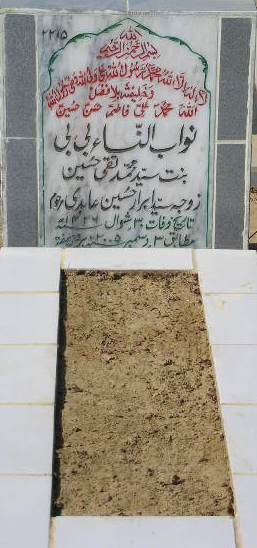 ۲۲۱۵
بسم اللہ الرحمن الرحیم
لا الہ الا اللہ محمد رسول اللہ علی ولی اللہ
وخلیفتہ بلا فصل
اللہ محمد علی فاطمہ حسن حسین
نواب النساء بی بی
بنت سید محمد تقی حسنین
زوجہ سید ابرار حسین عابدی مرحوم
تاریخ وفات ۳۰ شوال ۱۴۲۶ھ
مطابق ۳ دسمبر ۲۰۰۵ء بروز ہفتہ